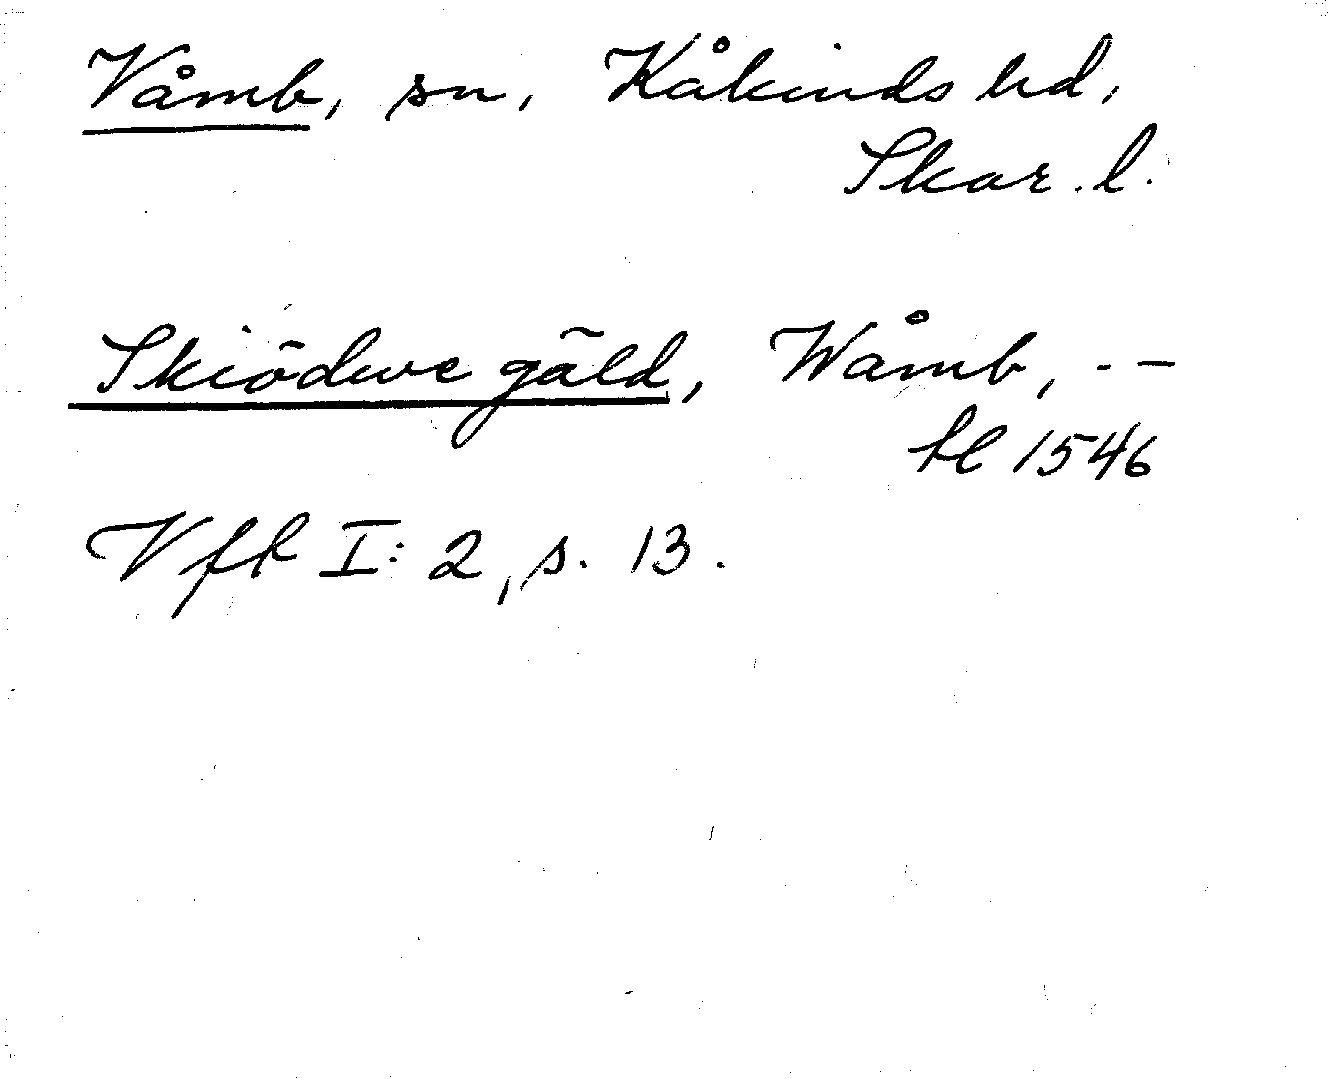 Våmb, sn, Kåkinds hd,
Skar. l.
Skiödwe gäld, Wåmb, . –
tl 1546
Vfk I: 2, s. 13.